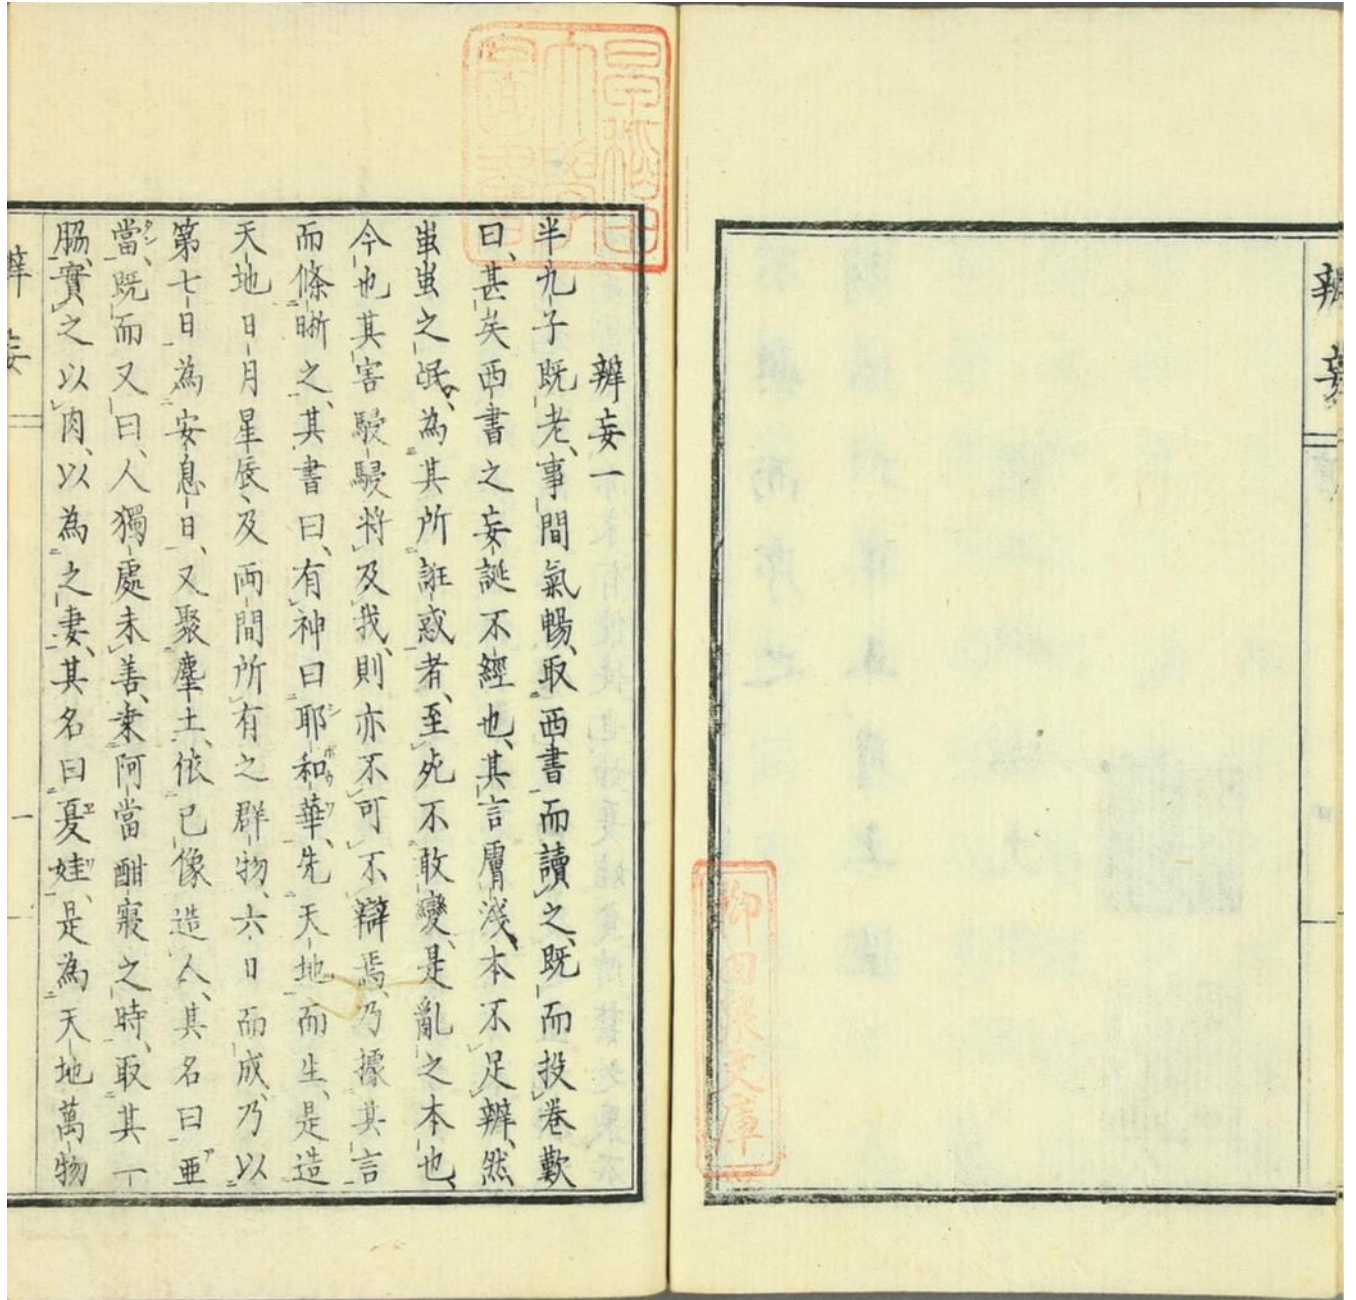 辨妄
早稻田大學圖書
柳田泉文庫
辨妄一
半九子既老、事間氣暢、取西書而讀之、既而投卷歎
曰、甚矣西書之妄誕不經也、其言膚淺、本不足辨、然
蚩蚩之氓、為其所誑惑者、至死不敢變、是亂之本也、
今也其害駸駸將及我、則亦不可不辯焉、乃據其言
而條晣之、其書曰、有神曰耶和華、先天地而生、是造
天地日月星辰、及兩間所有之群物、六日而成、乃以
第七日為安息日、又聚塵土、依己像造人、其名曰亜
當、既而又曰、人獨處未善、乘阿當酣寢之時、取其一
肠、實之以肉、以為之妻、其名曰夏娃、是為天地萬物
辨妄
一